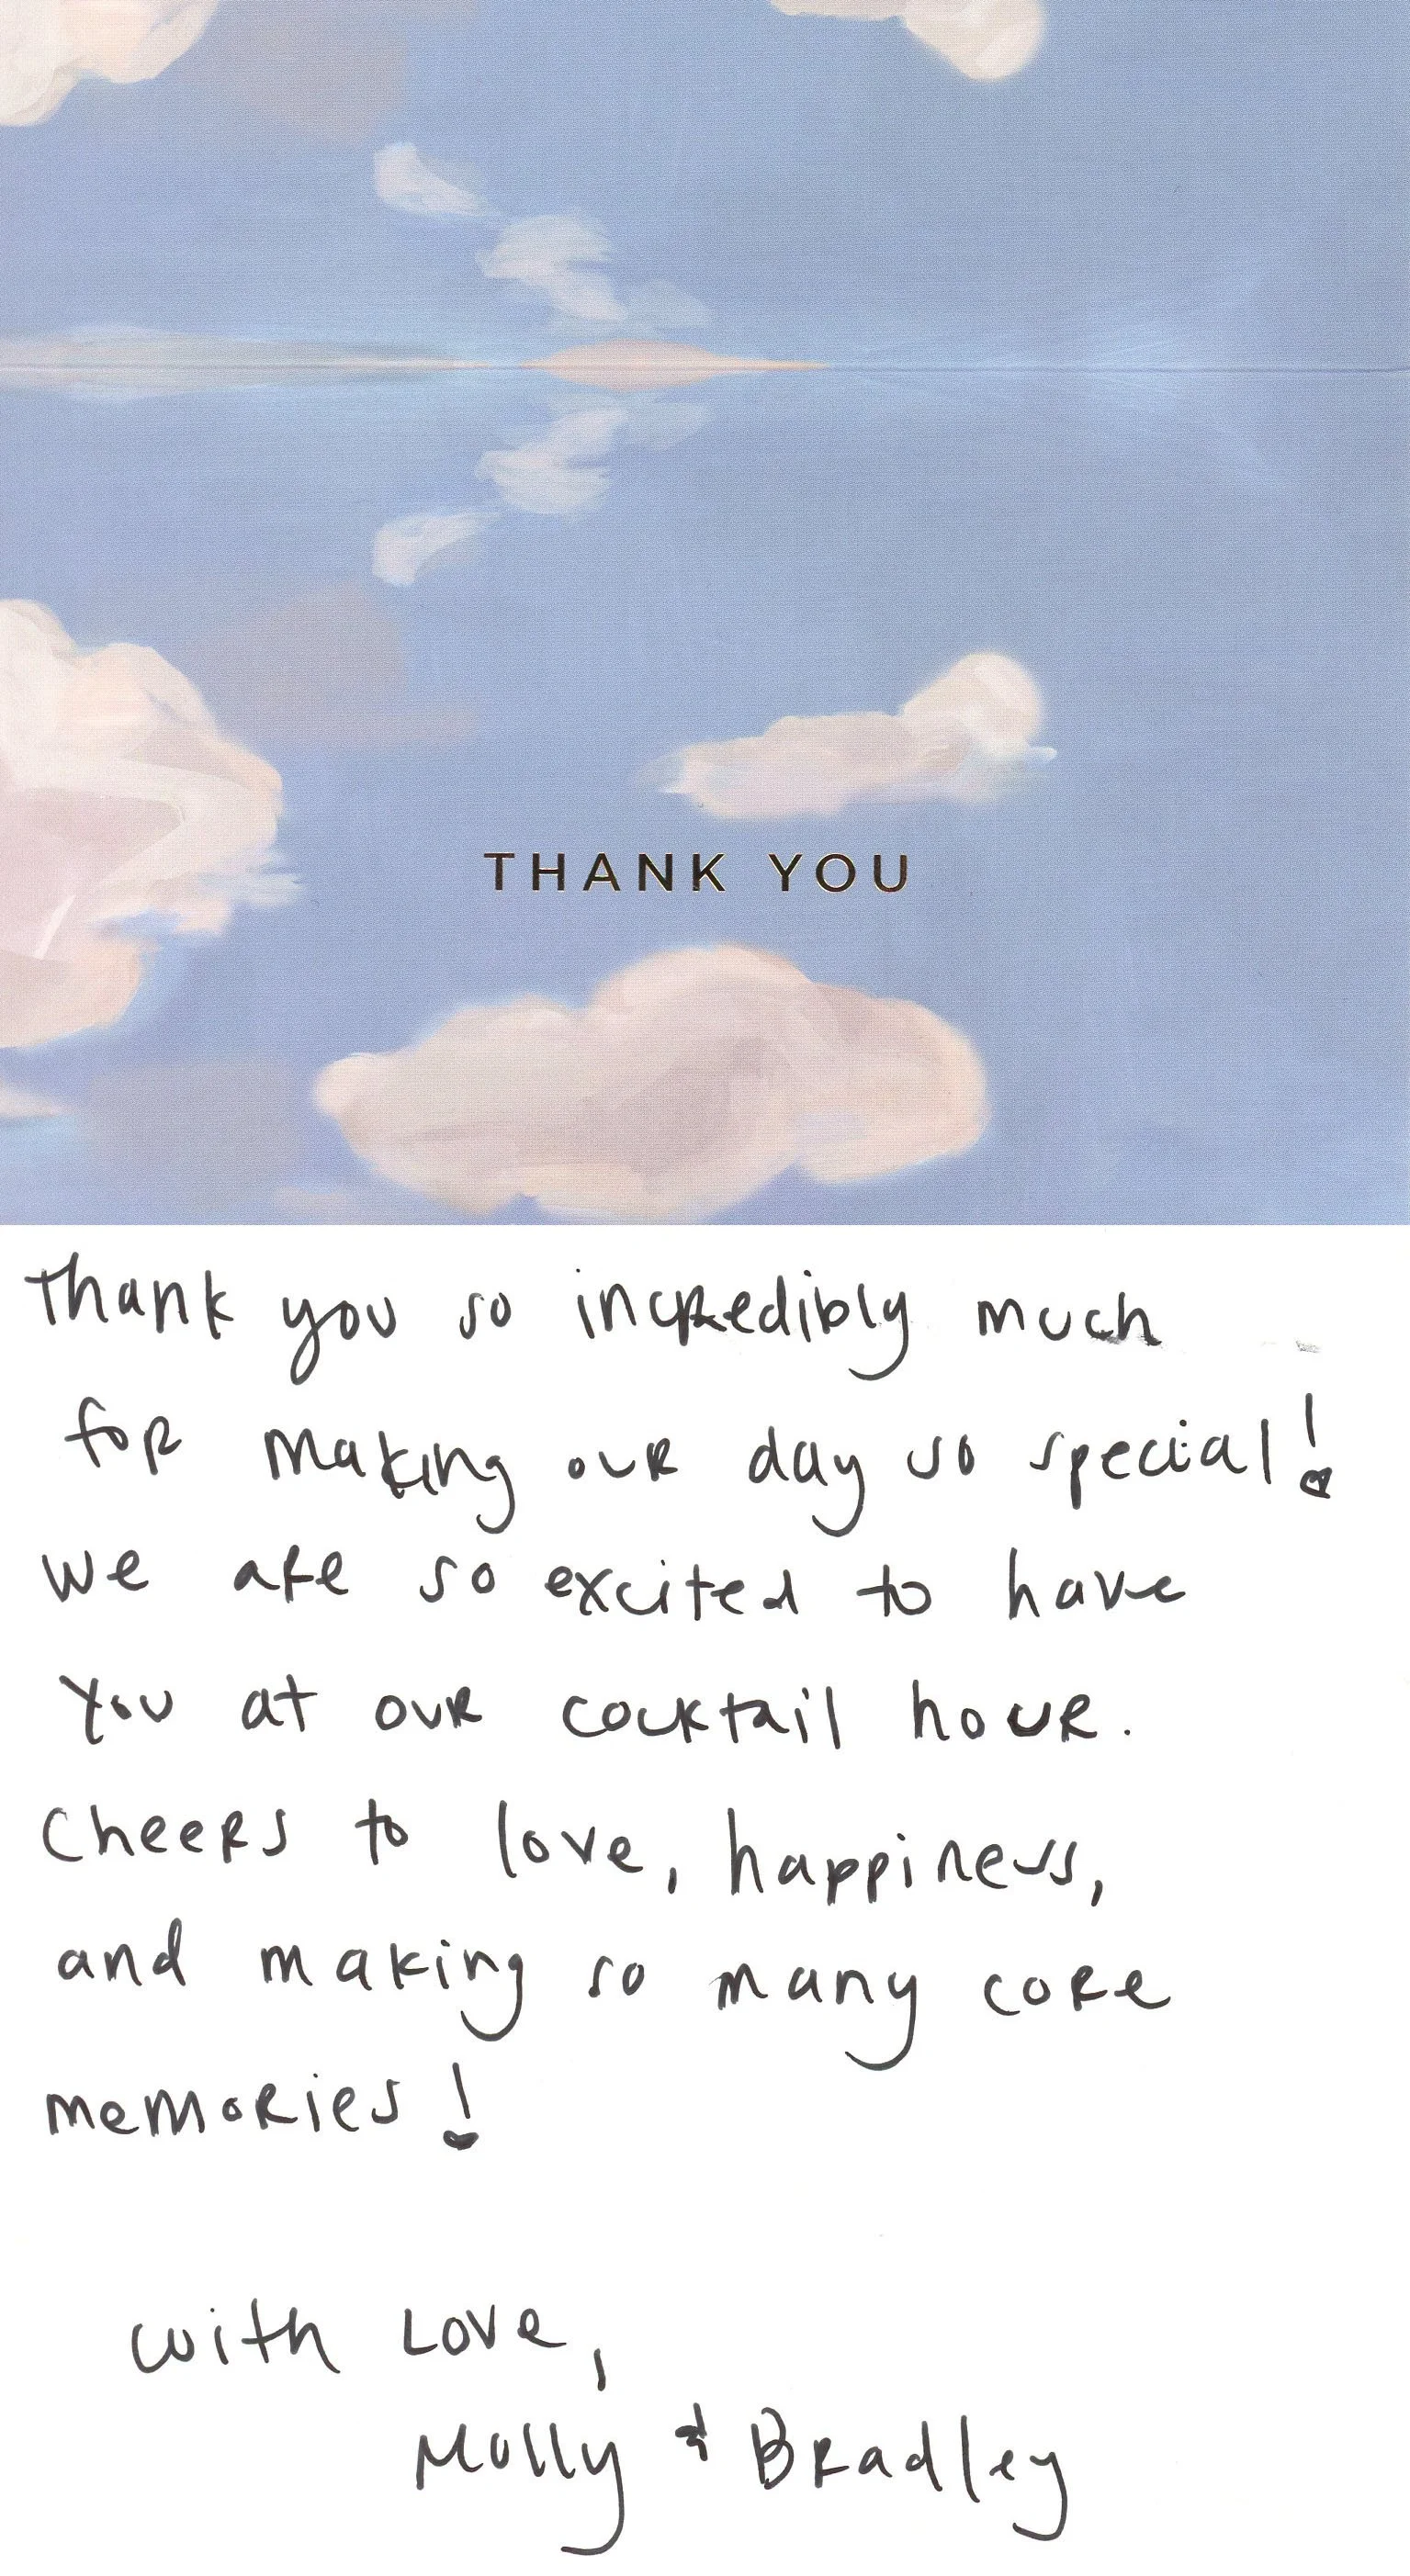 THANK YOU
Thank you so incredibly much
for making our day so special!
We are so excited to have
you at our cocktail hour.
Cheers to love, happiness,
and making so many core
memories!
with Love,
Molly & Bradley